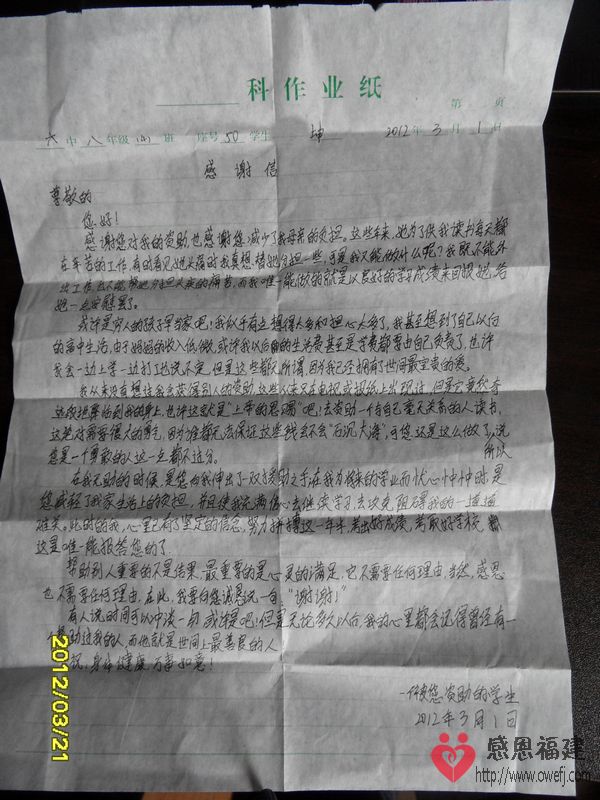 科作业纸
第 页
六中八年级(4)班 序号50学生 坤 2012年3月1日
感谢信
尊敬的
您好!
感谢您对我的资助,也感谢您减少了我母亲的负担。这些年来,她为了供我读书每天都
在辛苦的工作,有时看见她头痛时我真想替她分担一些,可是我又能做什么呢?我既不能外
出工作也不能帮她分担头疼的痛苦,而我唯一能做的就是以良好的学习成绩来回报她,给
她一点安慰罢了。
或许是穷人的孩子早当家吧,我似乎有点想得太多和担心太多了,我甚至想到了自己以后
的高中生活,由于妈妈的收入低微,或许我以后的生活费甚至是学费都要由自己负责了,也许
我会一边上学一边打工也说不定,但是这些都无所谓,因为我已经拥有了世间最宝贵的爱。
我从来没有想过我会获得别人的资助,这些以来只在电视或报纸上出现过,但是它竟然奇
迹般地降临到我的身上,也许这就是"上帝的恩赐"吧!去资助一个与自己毫无关系的人读书,
这绝对需要很大的勇气,因为谁都无法保证这些钱会不会"石沉大海",可您还是这么做了,说
您是一个勇敢的人这一点都不过分。 所以
在我无助的时候,是您为我伸出了一双援助之手,在我为将来的学业而忧心忡忡时,是
您减轻了我家生活上的负担,并且使我充满信心去继续学习,去攻克阻碍我的一道道
难关。此时的我,心里已有了坚定的信念,努力拼搏这一年半,考出好成绩,考取好学校,
这是唯一能报答您的了。
帮助别人重要的不是结果,最重要的是心灵的满足,它不需要任何理由,当然,感恩
也不需要任何理由,在此,我要向您诚恳说一句:"谢谢!"
有人说时间可以冲淡一切,或许是吧!但是无论多久以后,我的心里都会记得曾经有一
帮助过我的人,而他就是世间上最善良的人
祝:身体健康 万事如意!
一个被您资助的学生
2012年3月1日
2012/03/21
感恩福建
http://www.owefj.com